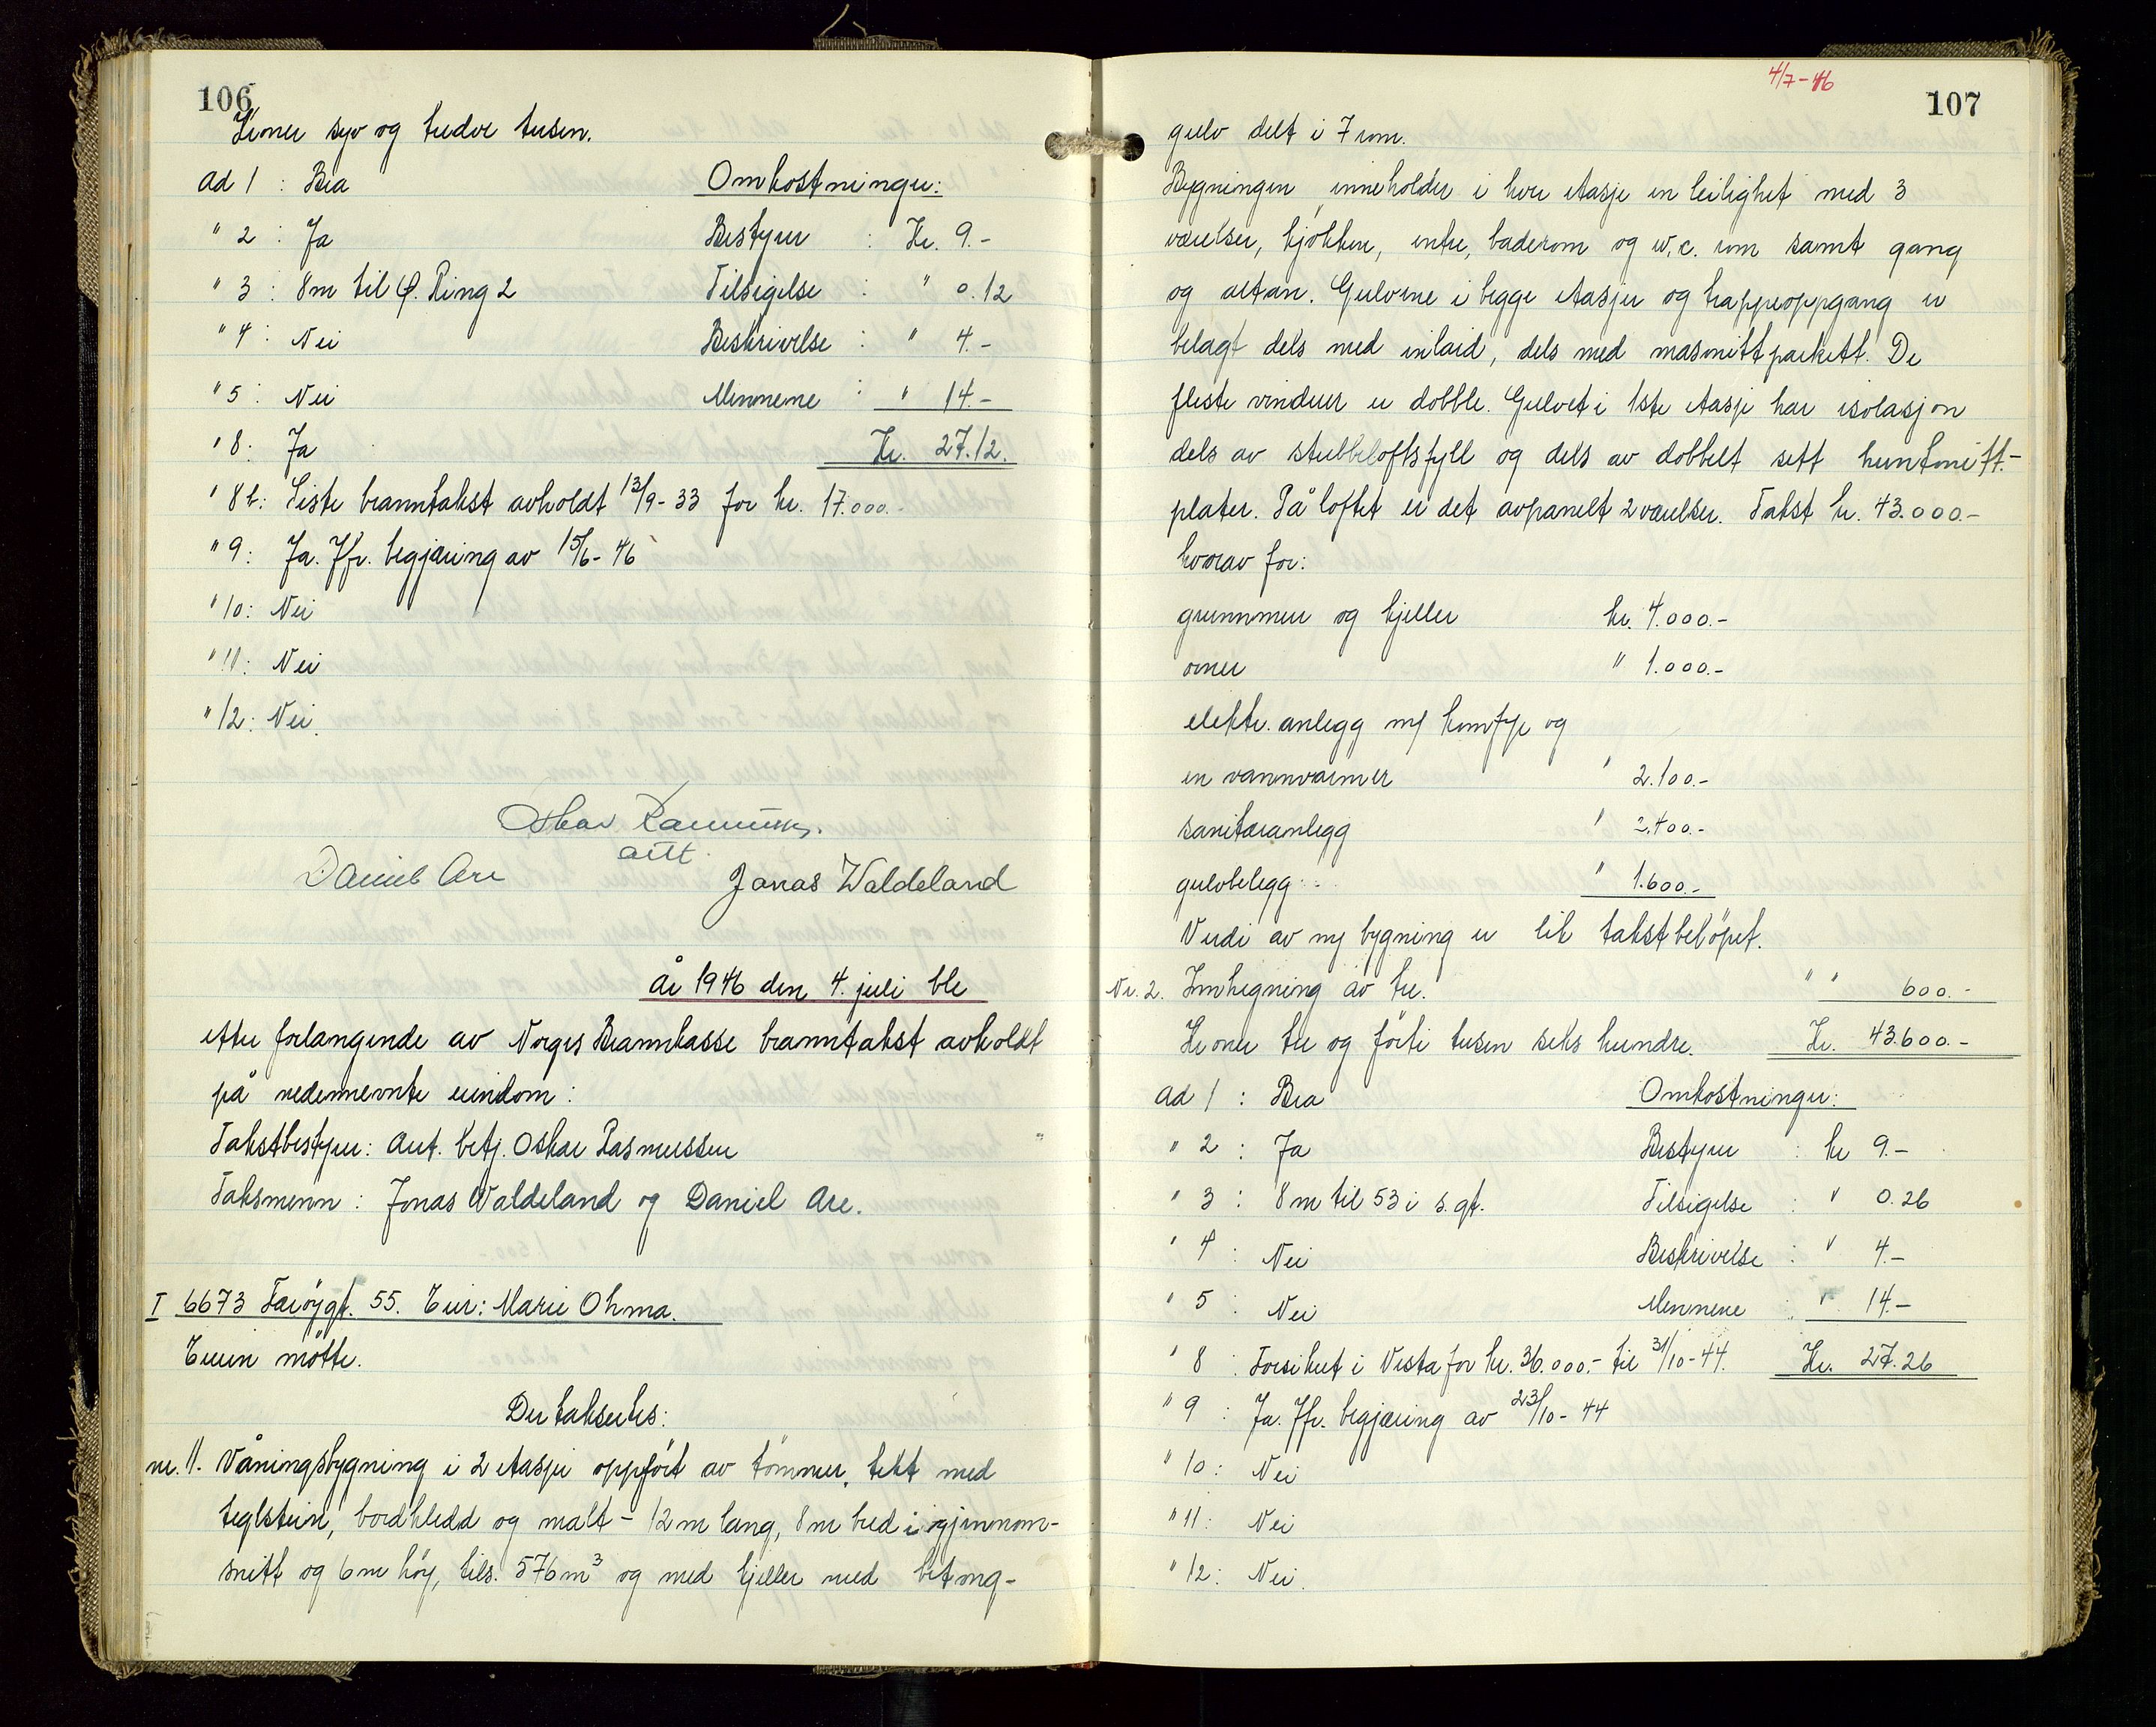 106
Kroner syv og tredve tusen.
Ad 1 : Bra Omkostninger:
" 2 : Ja Bestyrer : Kr. 9.-
" 3 : 8m til Ø. Ring 2 Tilsigelse : " 0.12
" 4 : Nei Beskrivelse : " 4.-
" 5 : Nei Mennene : " 14.-
" 8 : Ja Kr. 27.12.
" 8b: Siste branntakst avholdt 13/9-33 for kr. 17.000.-
" 9: Ja. Jfr. begjæring av 15/6-46
" 10: Nei
" 11: Nei
" 12: Nei.
Oskar Rasmussen.
autt.
Daniel Are Jonas Waldeland
År 1946 den 4. juli ble
etter forlangende av Norges Brannkasse branntakst avholdt
på nedennevnte eiendom:
Takstbestyrer: Aut. betj. Oskar Rasmussen
Taksmenn: Jonas Waldeland og Daniel Are.
I 6673 Færöygt. 55. Eier: Marie Ohma.
Eieren møtte.
Der takseres:
nr. 1. Våningsbygning i 2 etasjer oppført av tömmer, tekt med
teglstein, bordkledd og malt - 12m lang, 8m bred i gjennom-
snitt og 6m höy, tils. 576m³ og med kjeller med betong-
4/7-46
107
gulv delt i 7 rom.
Bygningen inneholder i hver etasje en leilighet med 3
værelser, kjökken, entre, baderom og w.c. rom samt gang
og altan. Gulvene i begge etasjer og trappeoppgang er
belagt dels med inlaid, dels med masonittparkett. De
fleste vinduer er dobble. Gulvet i 1ste etasje har isolasjon
dels av stubbeloftsfyll og dels av dobbelt sett huntonitt-
plater. På loftet er det avpanelt 2 værelser. Takst kr. 43.000.-
hvorav for:
grunnmur og kjeller kr. 4.000.-
ovner " 1.000.-
elektr. anlegg m/ komfyr og
en vannvarmer " 2.100.-
sanitæranlegg " 2.400.-
gulvbelegg " 1.600.-
Verdi av ny bygning er lik takstbelöpet.
Nr. 2. Innhegning av tre. " " 600.-
Kroner tre og förti tusen seks hundre. Kr. 43.600.-
Ad 1 : Bra Omkostninger:
" 2 : Ja Bestyrer : kr 9.-
" 3 : 8m til 53 i s. gt. Tilsigelse : " 0.26
" 4 : Nei Beskrivelse : " 4.-
" 5 : Nei Mennene : " 14.-
" 8 : Forsikret i Vesta for kr. 36.000.- til 31/10-44. Kr. 27.26
" 9 : Ja. Jfr. begjæring av 23/10-44
" 10 : Nei
" 11 : Nei
" 12 : Nei.